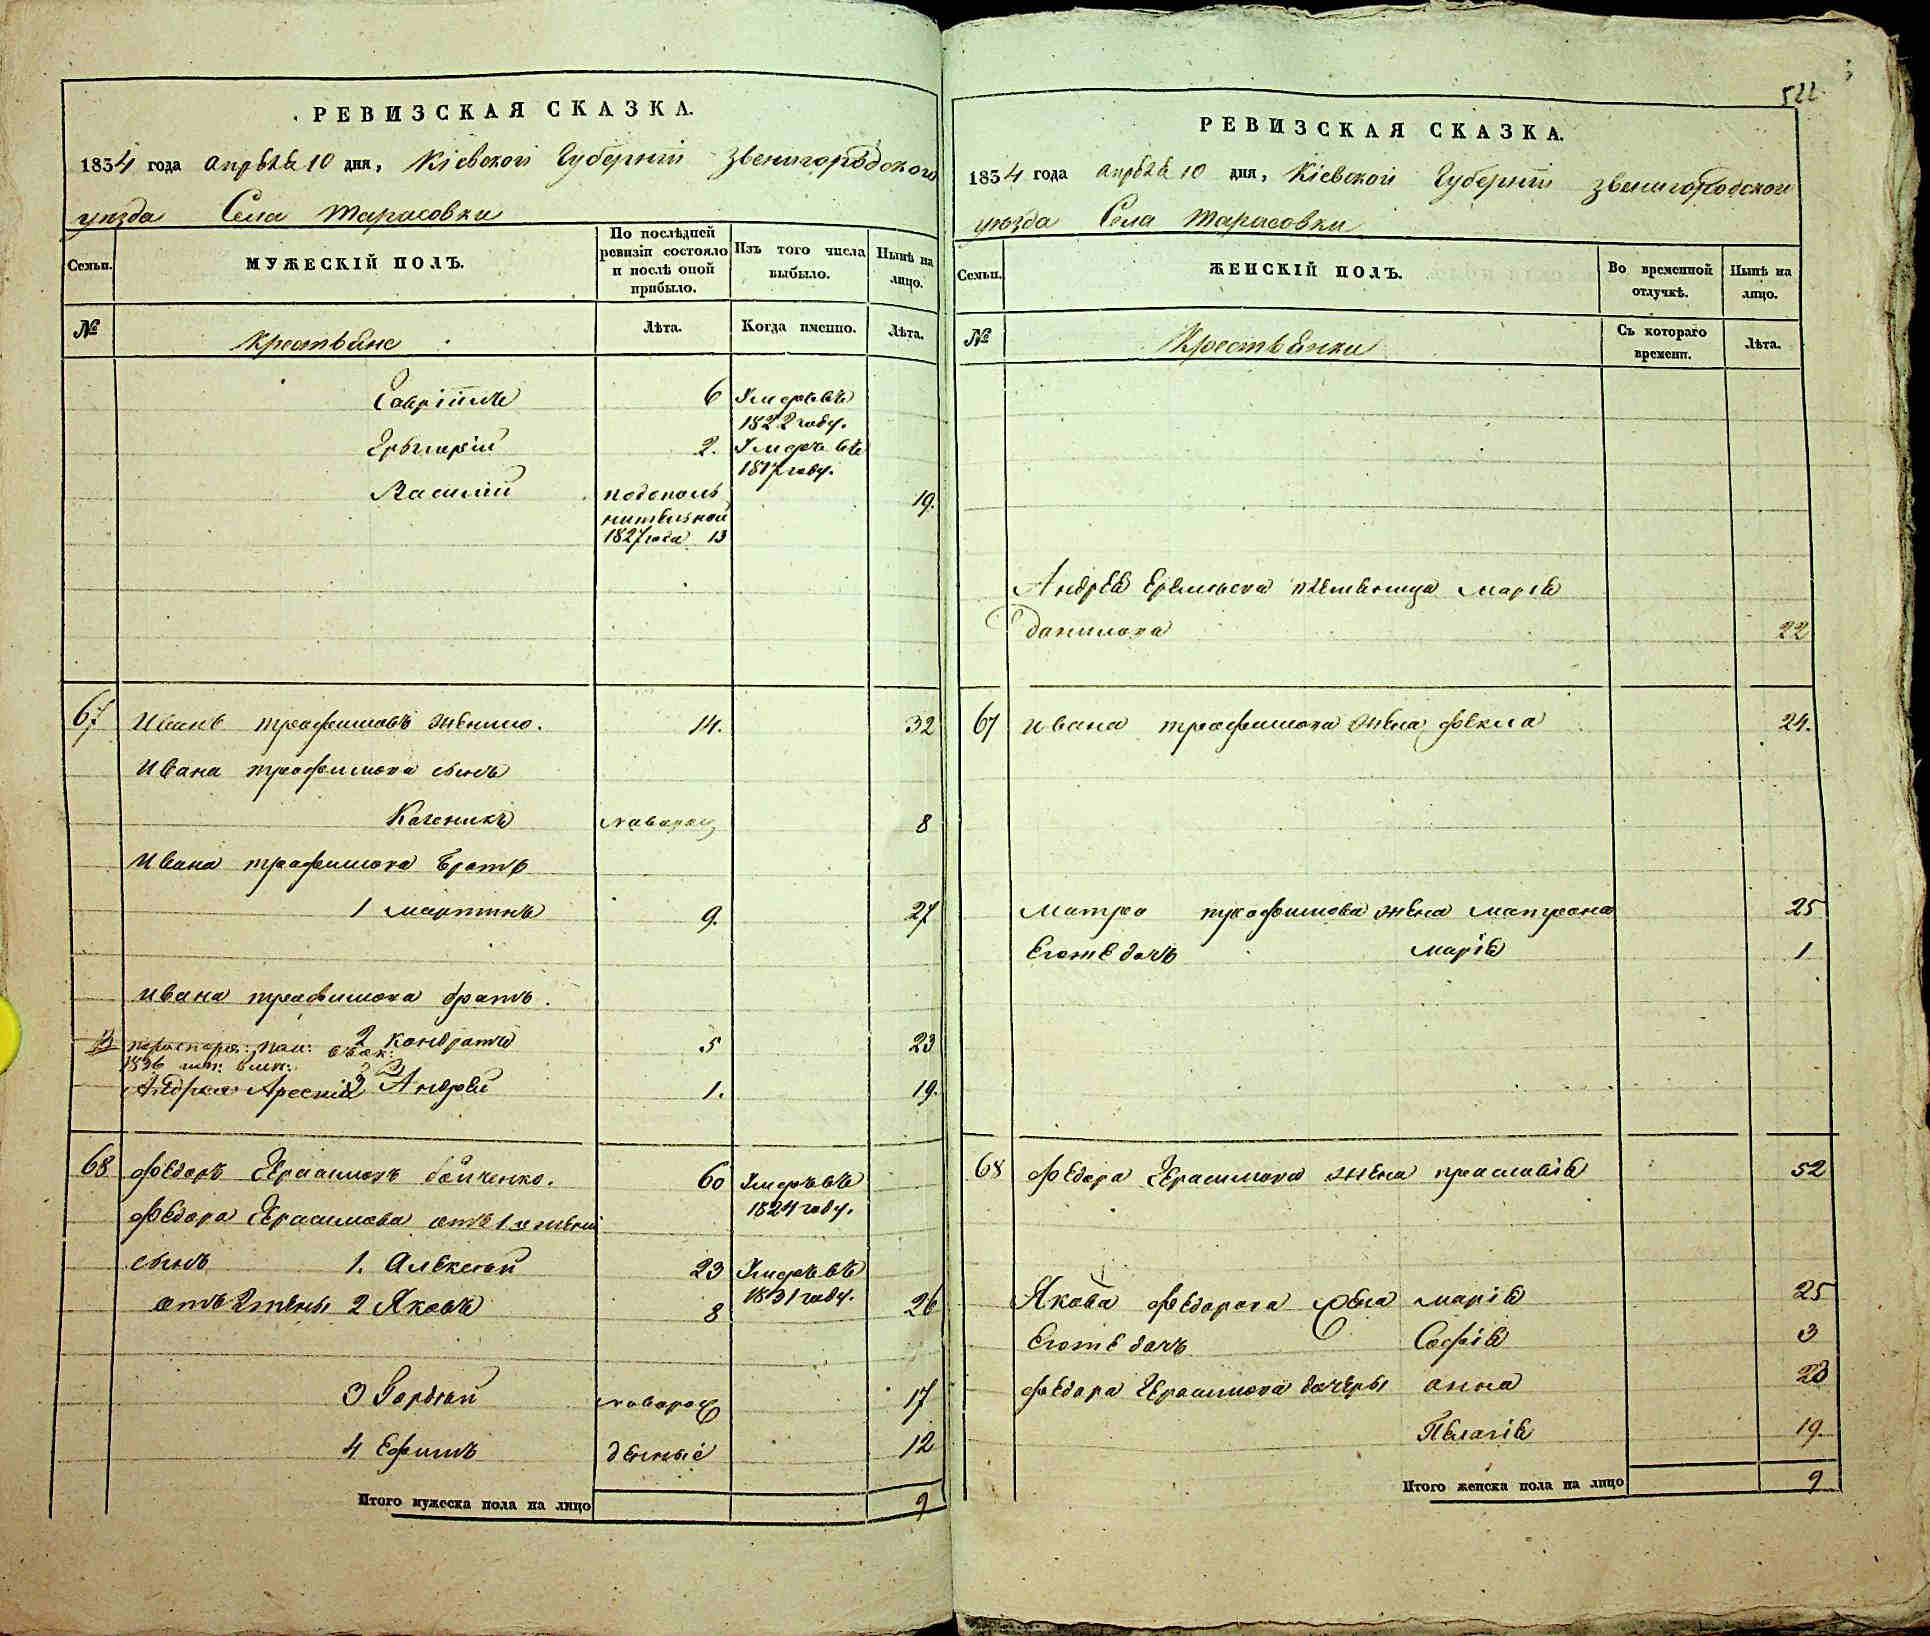 РЕВИЗСКАЯ СКАЗКА.
1834 года апреля 10 дня, Кіевской Губерніи Звенигородского
уезда Села Тарасовки
Семьи.
МУЖЕСКІЙ ПОЛЪ.
По послѣдней ревизіи состояло и послѣ оной прибыло.
Изъ того числа выбыло.
Нынѣ на лицо.
№
Крестьяне
Лѣта.
Когда именно.
Лѣта.
Гавріилъ 6 Умеръ въ
1822 году.
2. Умеръ въ
1817 году.
Василий подополнительной 1827 года 13 19.
67 Иванъ Трофимовъ 14. 32
Ивана Трофимова сынъ
новорож 8
Ивана Трофимова братъ
1 Мартинъ 9. 27
Ивана Трофимова братъ.
2 Кондратъ 5 23
3 Андрей 1. 19.
68 Федоръ Герасимовъ Бойченко. 60 Умеръ въ
1824 году.
Федора Герасимова отъ 1й жены
сынъ 1. Алексей 23 Умеръ въ
1831 году.
отъ 2 жены 2 Яковъ 8 26
3 Гордей новорож 17
4 Ефимъ денные 12
Итого мужеска пола на лицо 9
522
РЕВИЗСКАЯ СКАЗКА.
1834 года апреля 10 дня, Кіевской Губерніи Звенигородского
уезда Села Тарасовки
Семьи.
ЖЕНСКІЙ ПОЛЪ.
Во временной отлучкѣ.
Нынѣ на лицо.
№
Крестьянки
Съ котораго времени.
Лѣта.
Андрея племеница Марія
Данилова 22
67 Ивана Трофимова жена Фекла 24.
Трофимова жена Матрона 25
Егоже дочь Марія 1
68 Федора Герасимова жена 52
Якова Федорова жена Марія 25
Егоже дочь Софія 3
Федора Герасимова дочеры Анна 23
Пелагія 19.
Итого женска пола на лицо 9